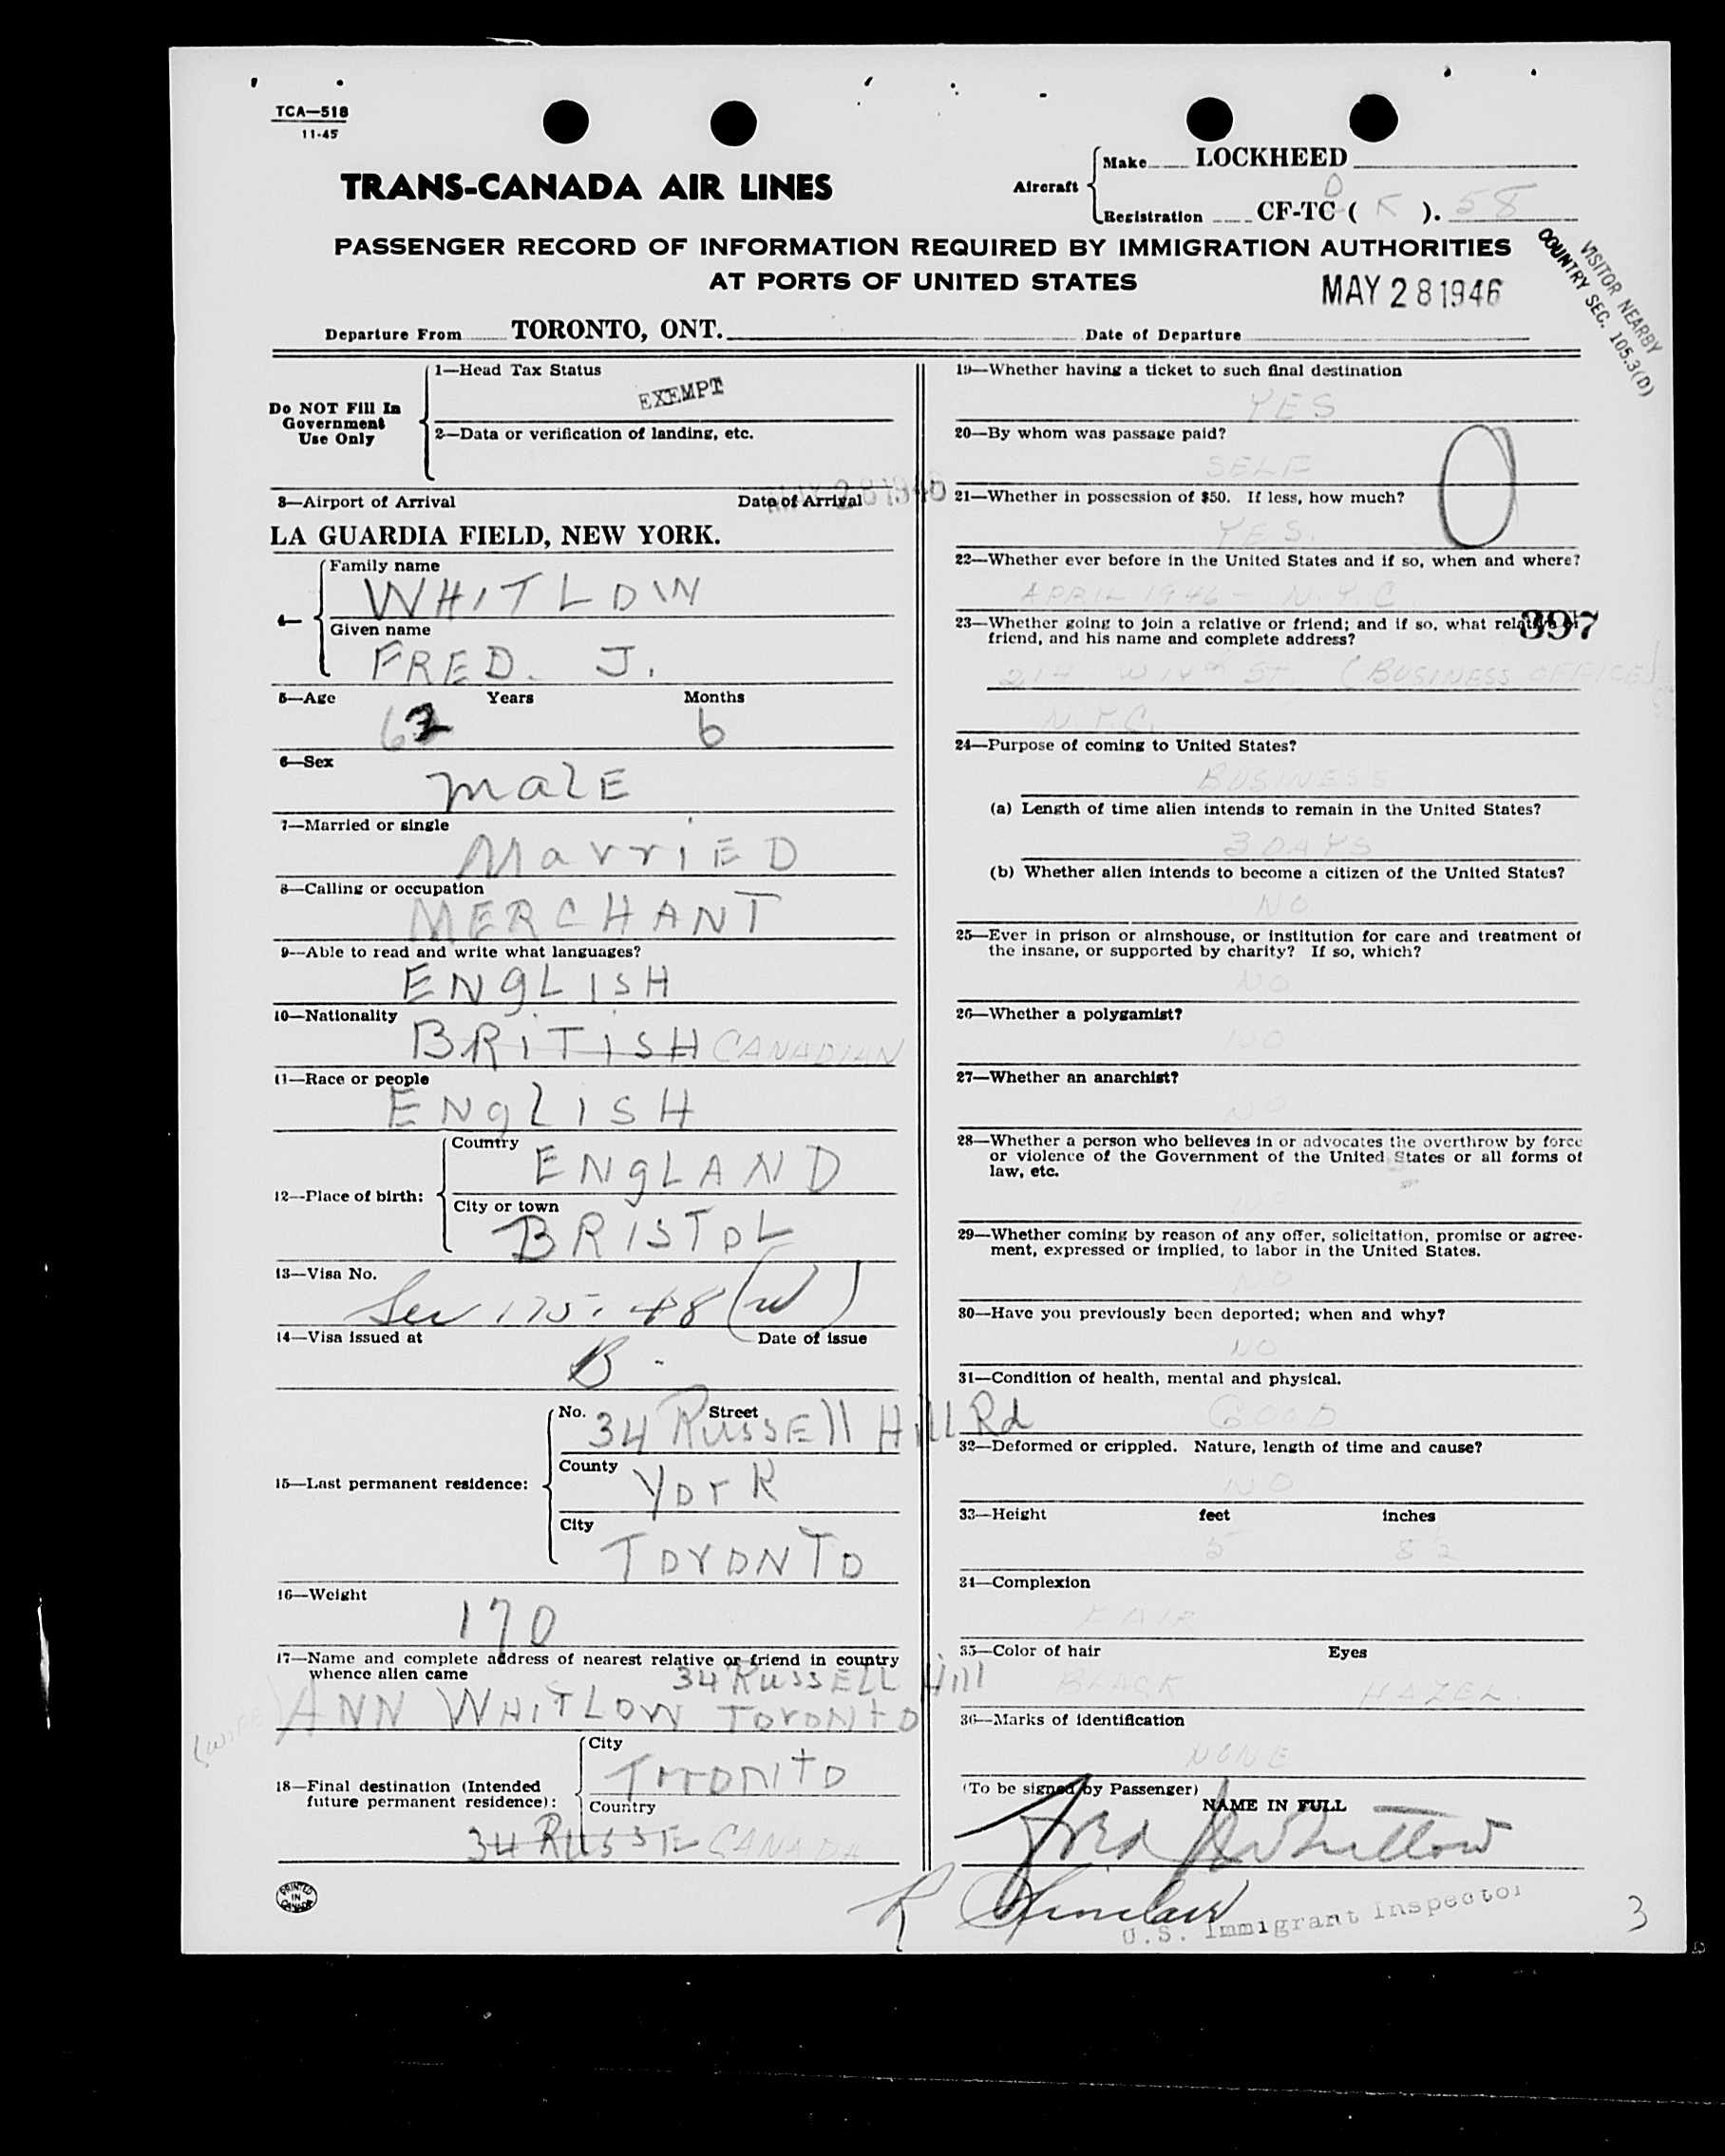 TCA—518
11-45
TRANS-CANADA AIR LINES
Aircraft
Make LOCKHEED
D
Registration CF-TC ( K ). 58
PASSENGER RECORD OF INFORMATION REQUIRED BY IMMIGRATION AUTHORITIES
AT PORTS OF UNITED STATES
MAY 28 1946
VISITOR NEARBY
COUNTRY SEC. 105.3(D)
Departure From TORONTO, ONT. Date of Departure
Do NOT Fill In
Government
Use Only
1—Head Tax Status
EXEMPT
2—Data or verification of landing, etc.
3—Airport of Arrival Date of Arrival
MAY 28 1946
LA GUARDIA FIELD, NEW YORK.
4—
Family name
WHITLOW
Given name
FRED. J.
5—Age Years Months
62 6
6—Sex
MalE
7—Married or single
MarriED
8—Calling or occupation
MERCHANT
9—Able to read and write what languages?
ENgLISH
10—Nationality
BRiTiSH CANADIAN
11—Race or people
ENglISH
12—Place of birth:
Country
ENgLAND
City or town
BRISTOL
13—Visa No.
Sec 175.48 (w)
14—Visa issued at Date of issue
B -
15—Last permanent residence:
No. Street
34 RussEll Hill Rd
County
YorK
City
TorONTO
16—Weight
170
17—Name and complete address of nearest relative or friend in country
whence alien came
34 RussELL Hill
(WIFE) ANN WHiTLOW TorONtO
18—Final destination (Intended
future permanent residence):
City
TorONtO
Country
34 RUSSE CANADA
PRINTED
IN
CANADA
19—Whether having a ticket to such final destination
YES
20—By whom was passage paid?
SELF
21—Whether in possession of $50. If less, how much?
YES.
0
22—Whether ever before in the United States and if so, when and where?
APRIL 1946 — N.Y.C.
397
23—Whether going to join a relative or friend; and if so, what relative or
friend, and his name and complete address?
214 W 14th St. (BUSINESS OFFICE)
N.Y.C.
24—Purpose of coming to United States?
BUSINESS
(a) Length of time alien intends to remain in the United States?
3 DAYS
(b) Whether alien intends to become a citizen of the United States?
NO
25—Ever in prison or almshouse, or institution for care and treatment of
the insane, or supported by charity? If so, which?
NO
26—Whether a polygamist?
NO
27—Whether an anarchist?
NO
28—Whether a person who believes in or advocates the overthrow by force
or violence of the Government of the United States or all forms of
law, etc.
NO
29—Whether coming by reason of any offer, solicitation, promise or agree-
ment, expressed or implied, to labor in the United States.
NO
30—Have you previously been deported; when and why?
NO
31—Condition of health, mental and physical.
GOOD
32—Deformed or crippled. Nature, length of time and cause?
NO
33—Height feet inches
5
34—Complexion
FAIR
35—Color of hair Eyes
BLACK HAZEL.
36—Marks of identification
NONE
(To be signed by Passenger)
NAME IN FULL
Fred J Whitlow
R Sinclair
U.S. Immigrant Inspector
3